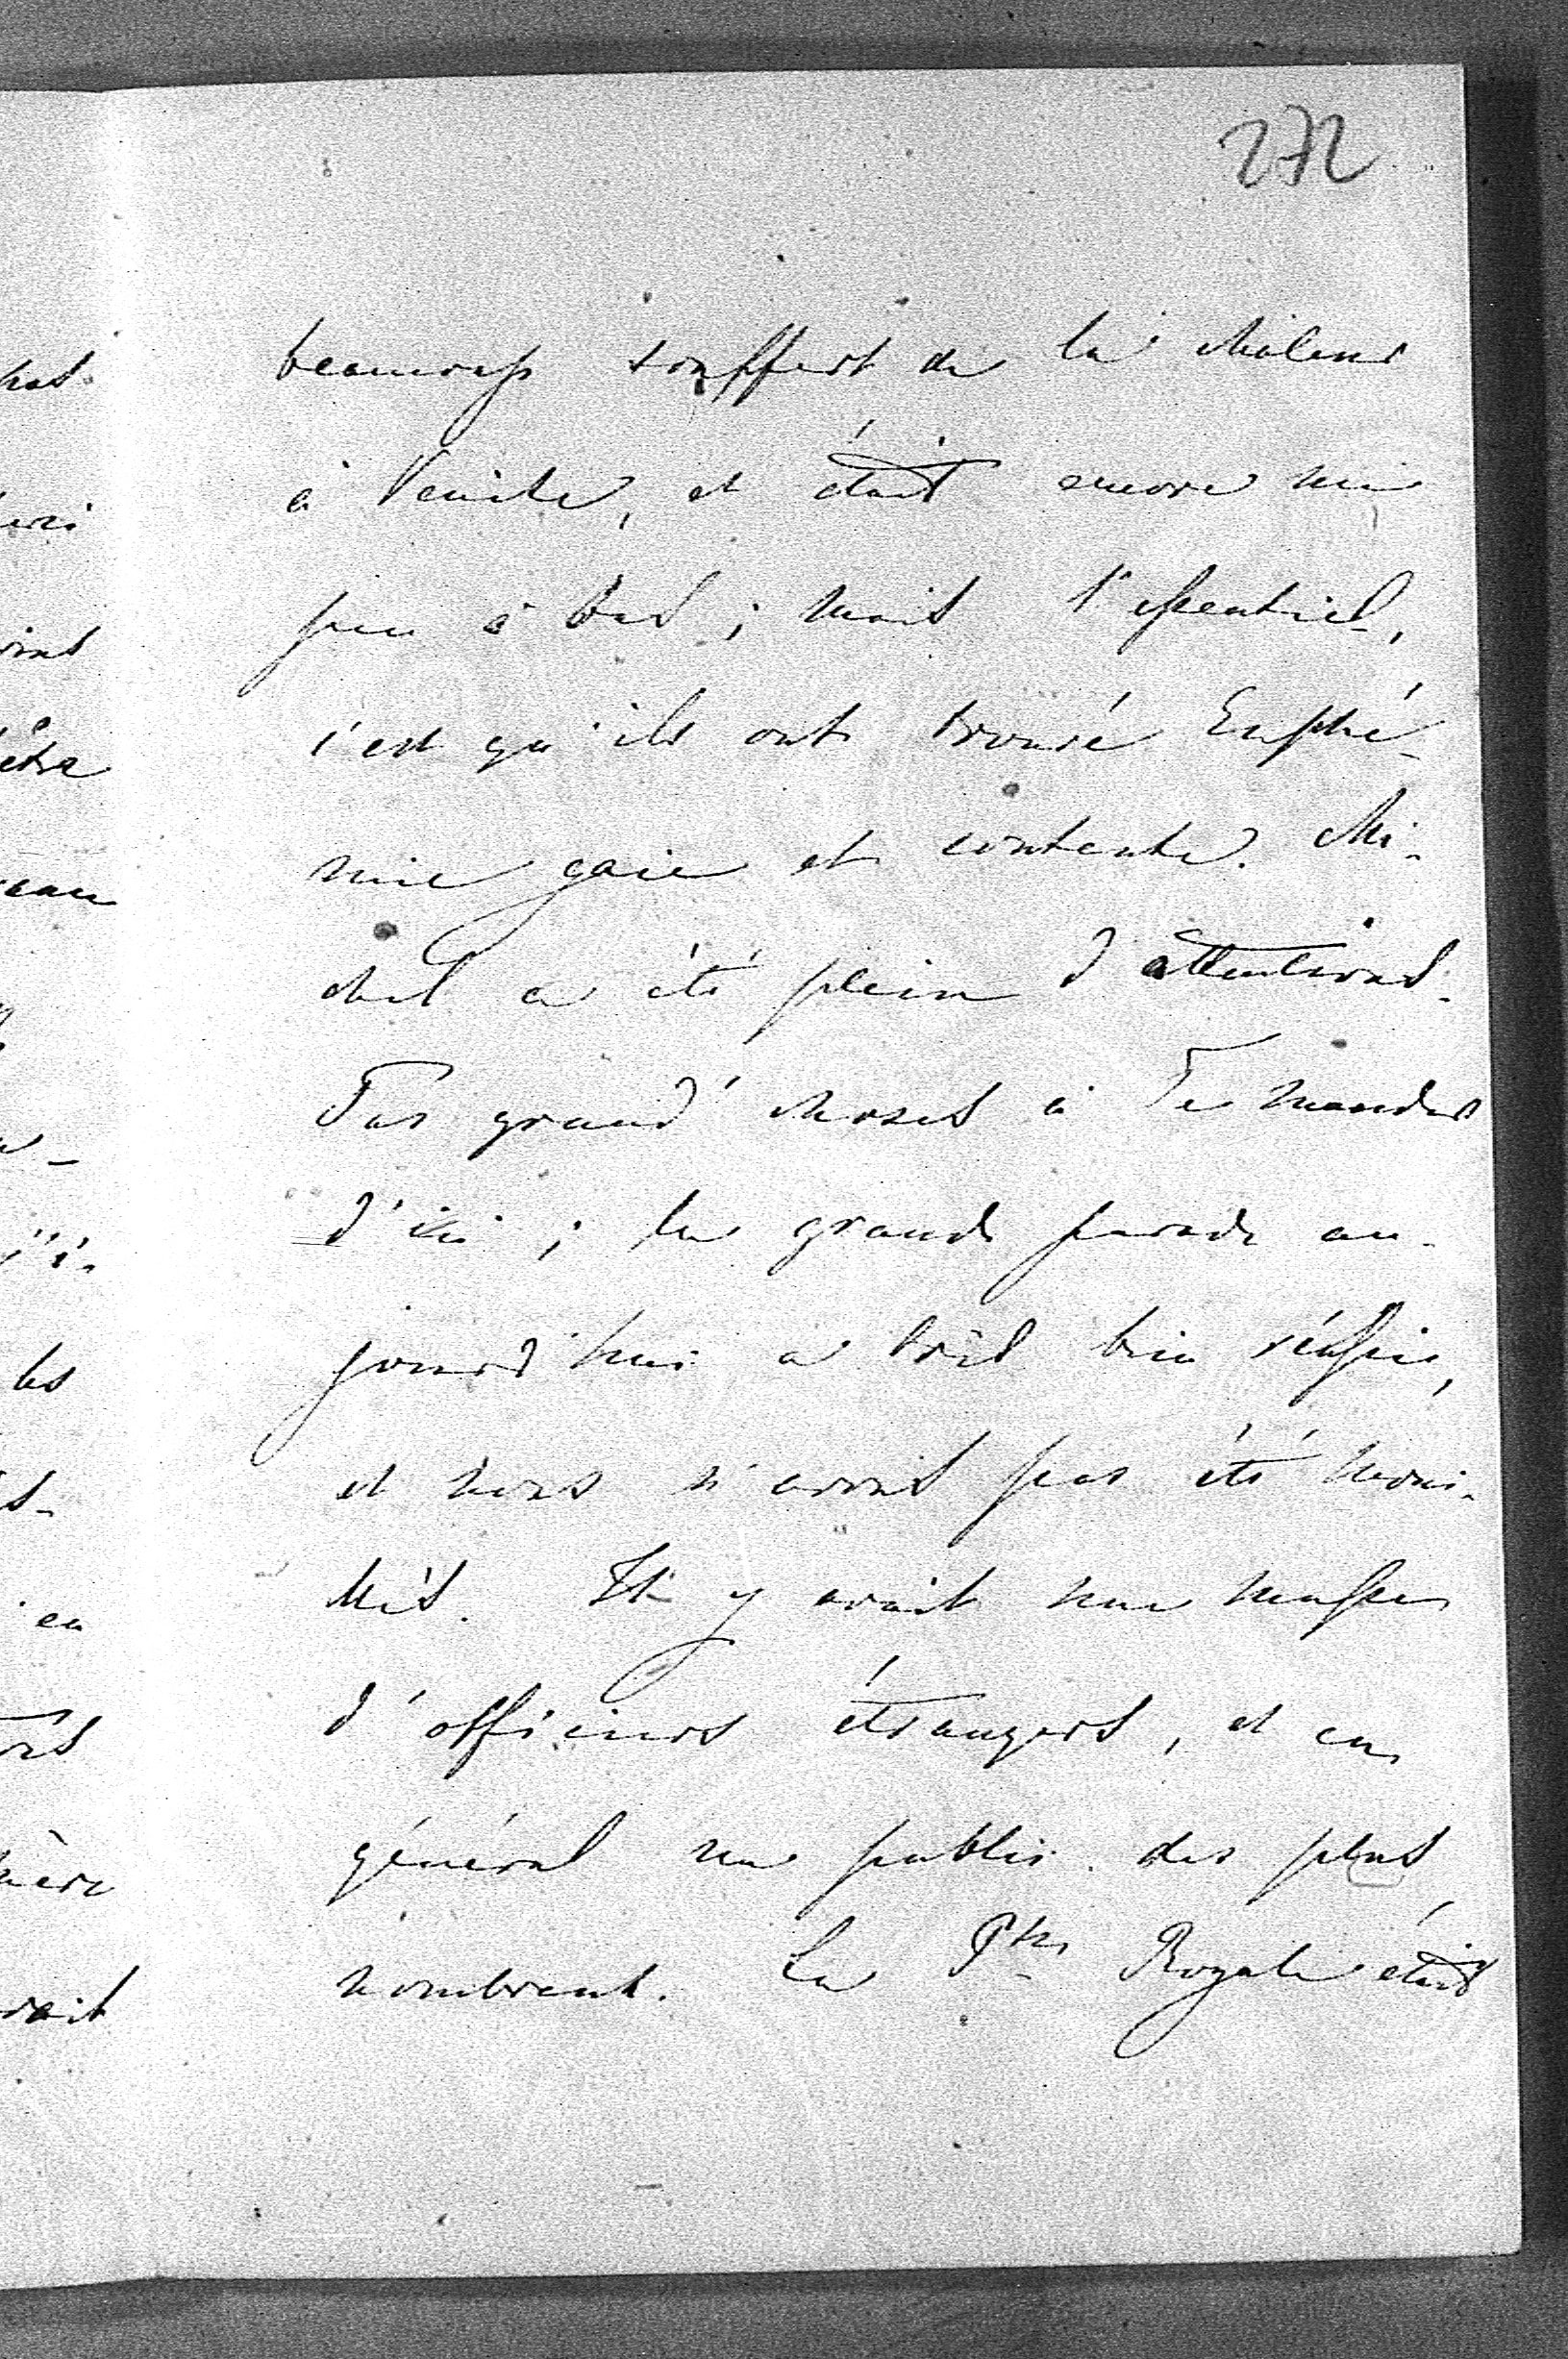 272
beaucoup souffert de la chaleur
à Venise, et était encore un
peu à bas ; mais l'essentiel,
c'est qu'ils ont trouvé Euphé-
mie gaie et contente. Mi-
chel a été plein d'attentions.
Pas grand' choses à Te mander
d'ici ; la grande parade au-
jourd'hui a très bien réussie,
et nous n'avons pas été moui-
llés. Il y avait une masse
d'officiers étrangers, et en
général un public des plus
nombreux. La Psse Royale était